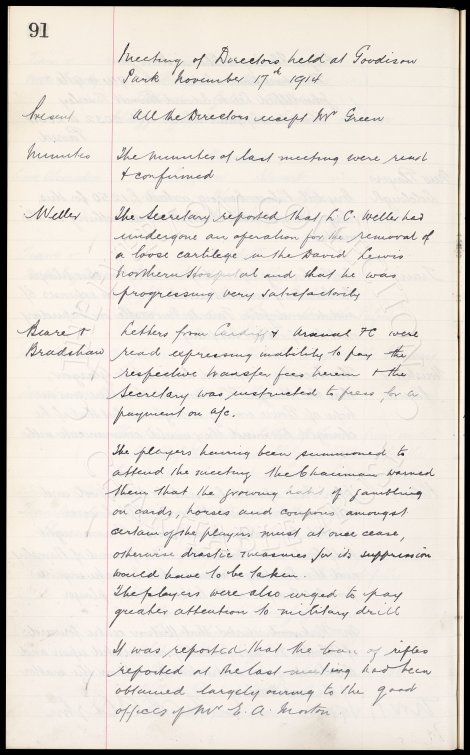 91
Meeting of Directors held at Goodison
Park November 17th 1914
Present All the Directors except Mr Green
Minutes The minutes of last meeting were read
& confirmed
Weller The Secretary reported that L C. Weller had
undergone an operation for the removal of
a loose cartilege in the David Lewis
Northern Hospital and that he was
progressing very satisfactorily
Beare & Letters from Cardiff & Arsenal FC were
Bradshaw read expressing inability to pay the
respective transfer fees herein & the
Secretary was instructed to press for a
payment on a/c.
The players having been summoned to
attend the meeting the Chairman warned
them that the growing habit of gambling
on cards, horses and coupons amongst
certain of the players must at once cease,
otherwise drastic measures for its suppression
would have to be taken.
The players were also urged to pay
greater attention to military drill
It was reported that the loan of rifles
reported at the last meeting had been
obtained largely owing to the good
offices of Mr E. A. Morton